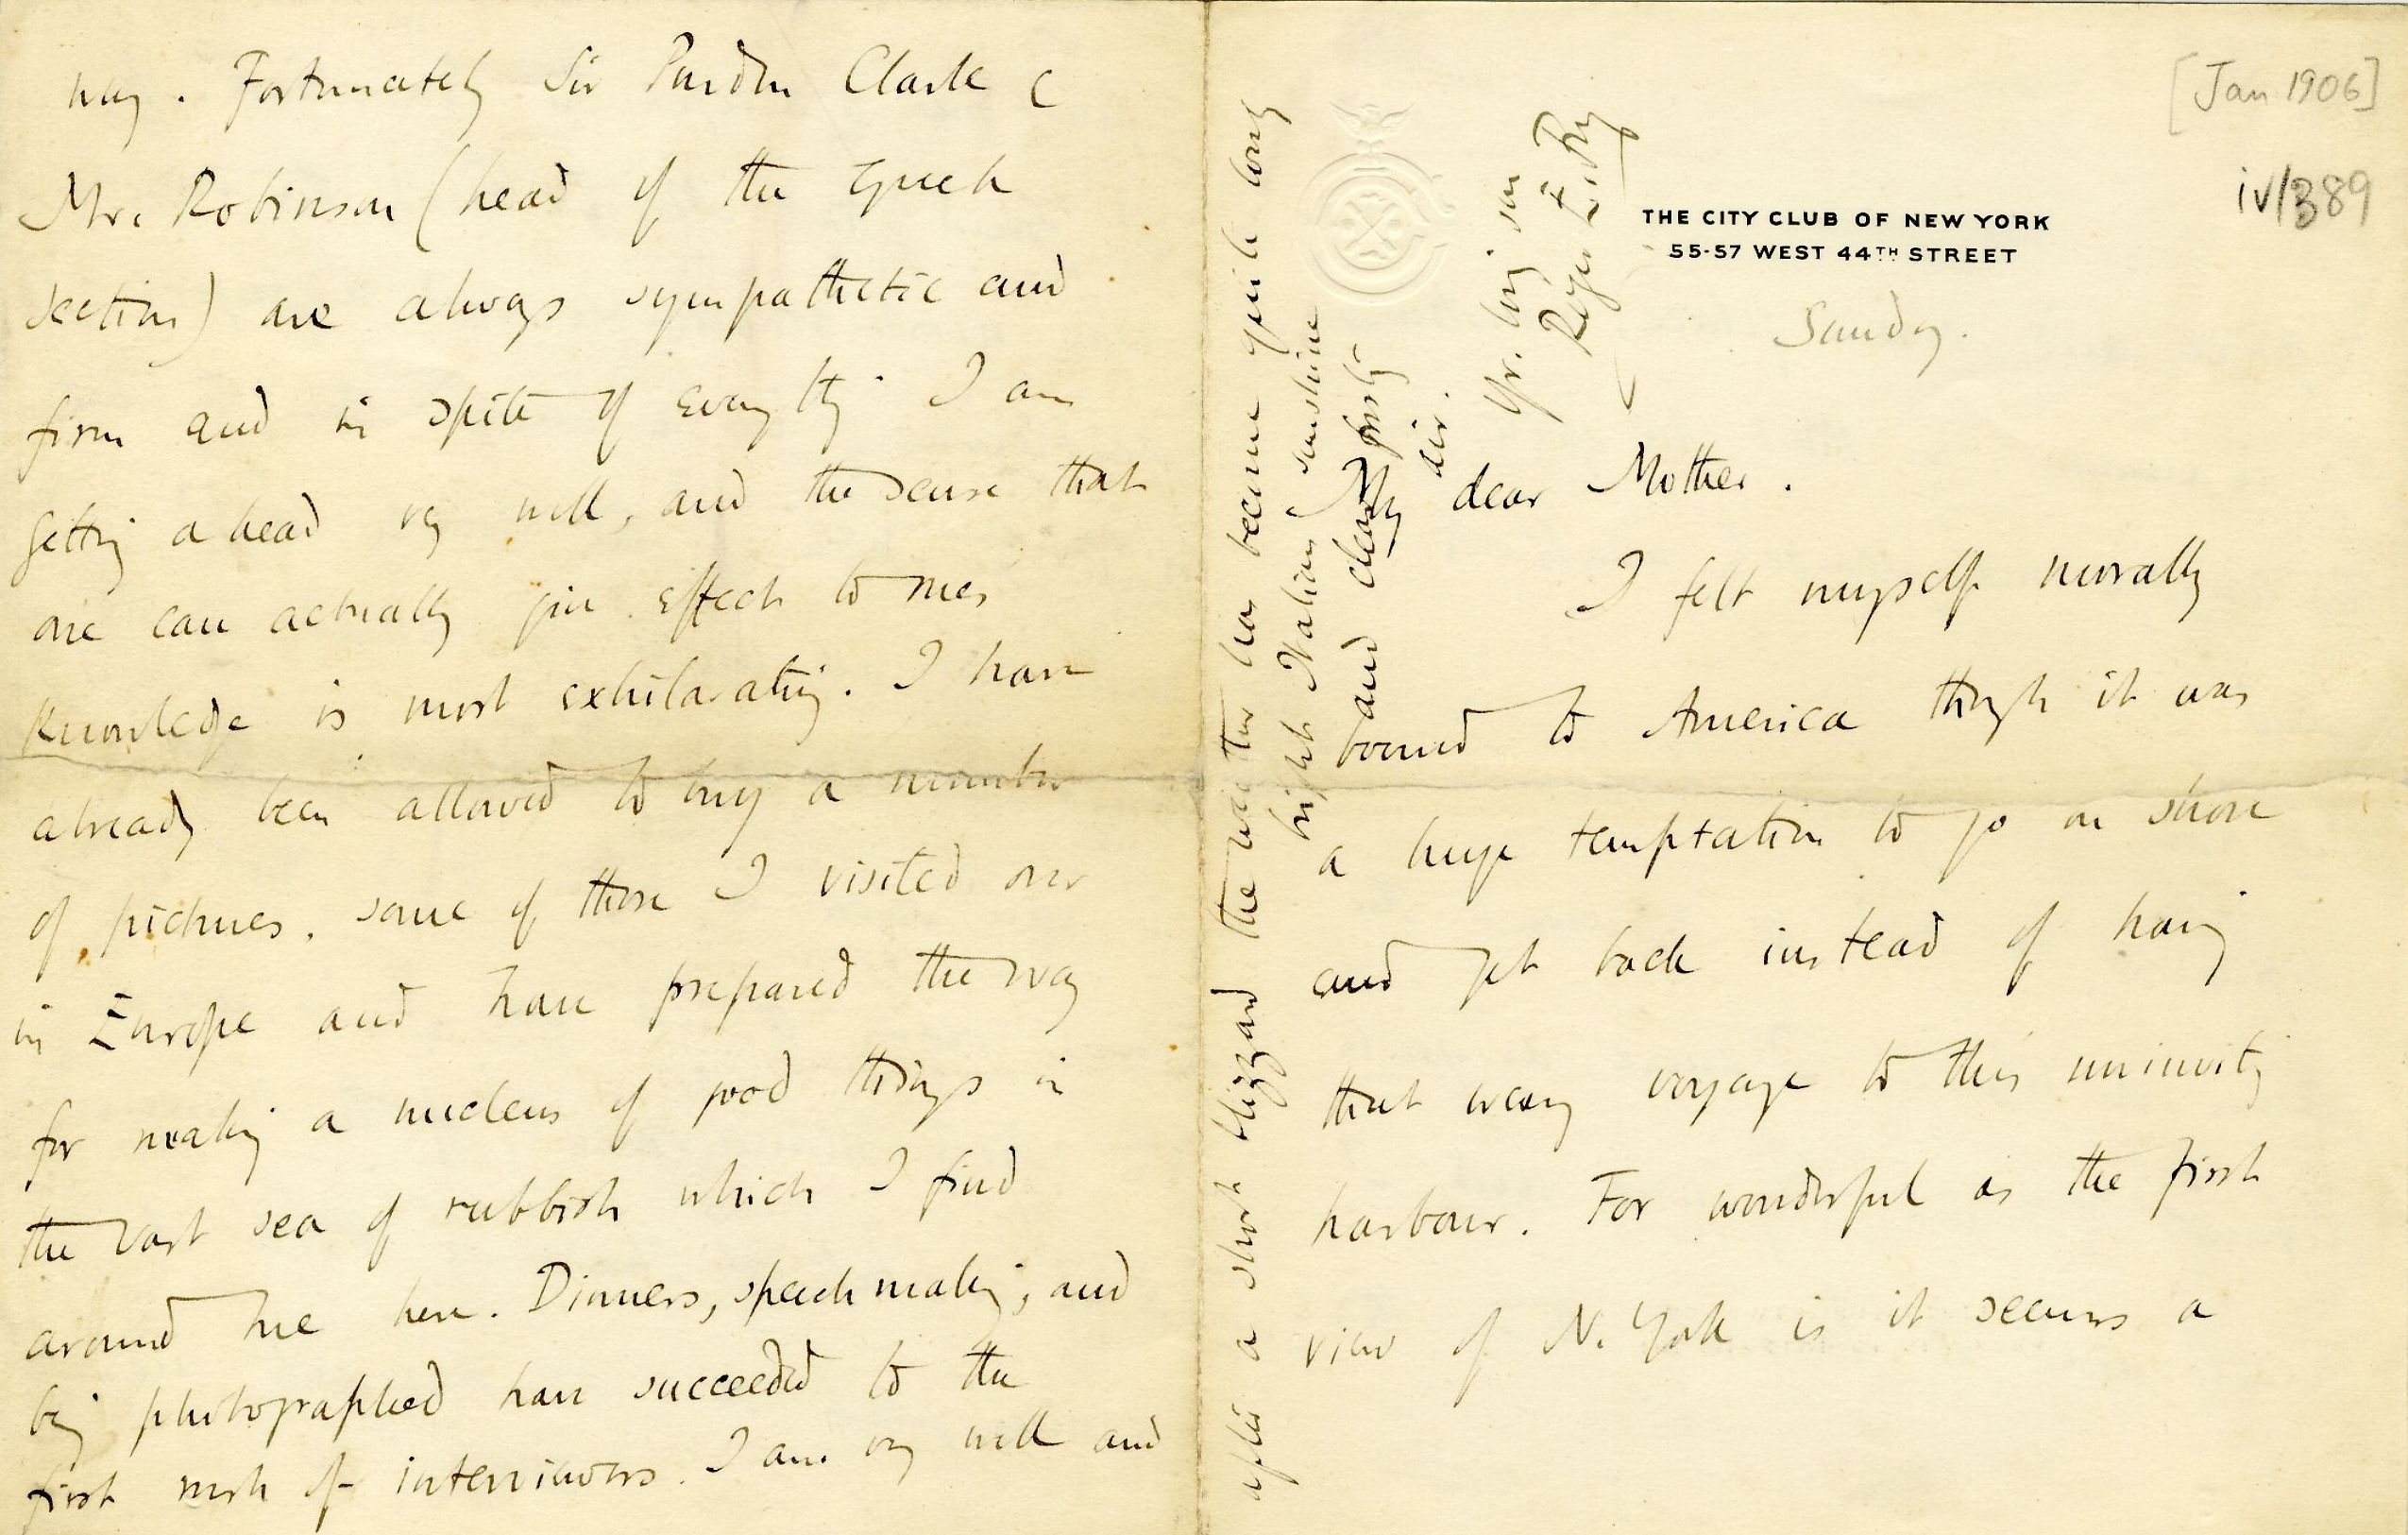 [Jan 1906]
iv/389
THE CITY CLUB OF NEW YORK
55-57 WEST 44TH STREET
Sunday.
My dear Mother.
I felt myself morally
bound to America though it was
a huge temptation to go on shore
and get back instead of having
that weary voyage to this uninviting
harbour. For wonderful as the first
view of N. York is it seems a
way. Fortunately Sir Purdon Clark &
Mr. Robinson (head of the Greek
section) are always sympathetic and
firm and in spite of everything I am
getting ahead very well, and the sense that
one can actually give effect to one's
knowledge is most exhilarating. I have
already been allowed to buy a number
of pictures, some of those I visited over
in Europe and have prepared the way
for making a nucleus of good things in
the vast sea of rubbish which I find
around me here. Dinners, speech making, and
being photographed have succeeded to the
first rush of interviewers. I am very well and
after a short blizzard the weather has become quite lovely
bright Italian sunshine
and clear frosty
air.
Yr. loving son
Roger E. Fry